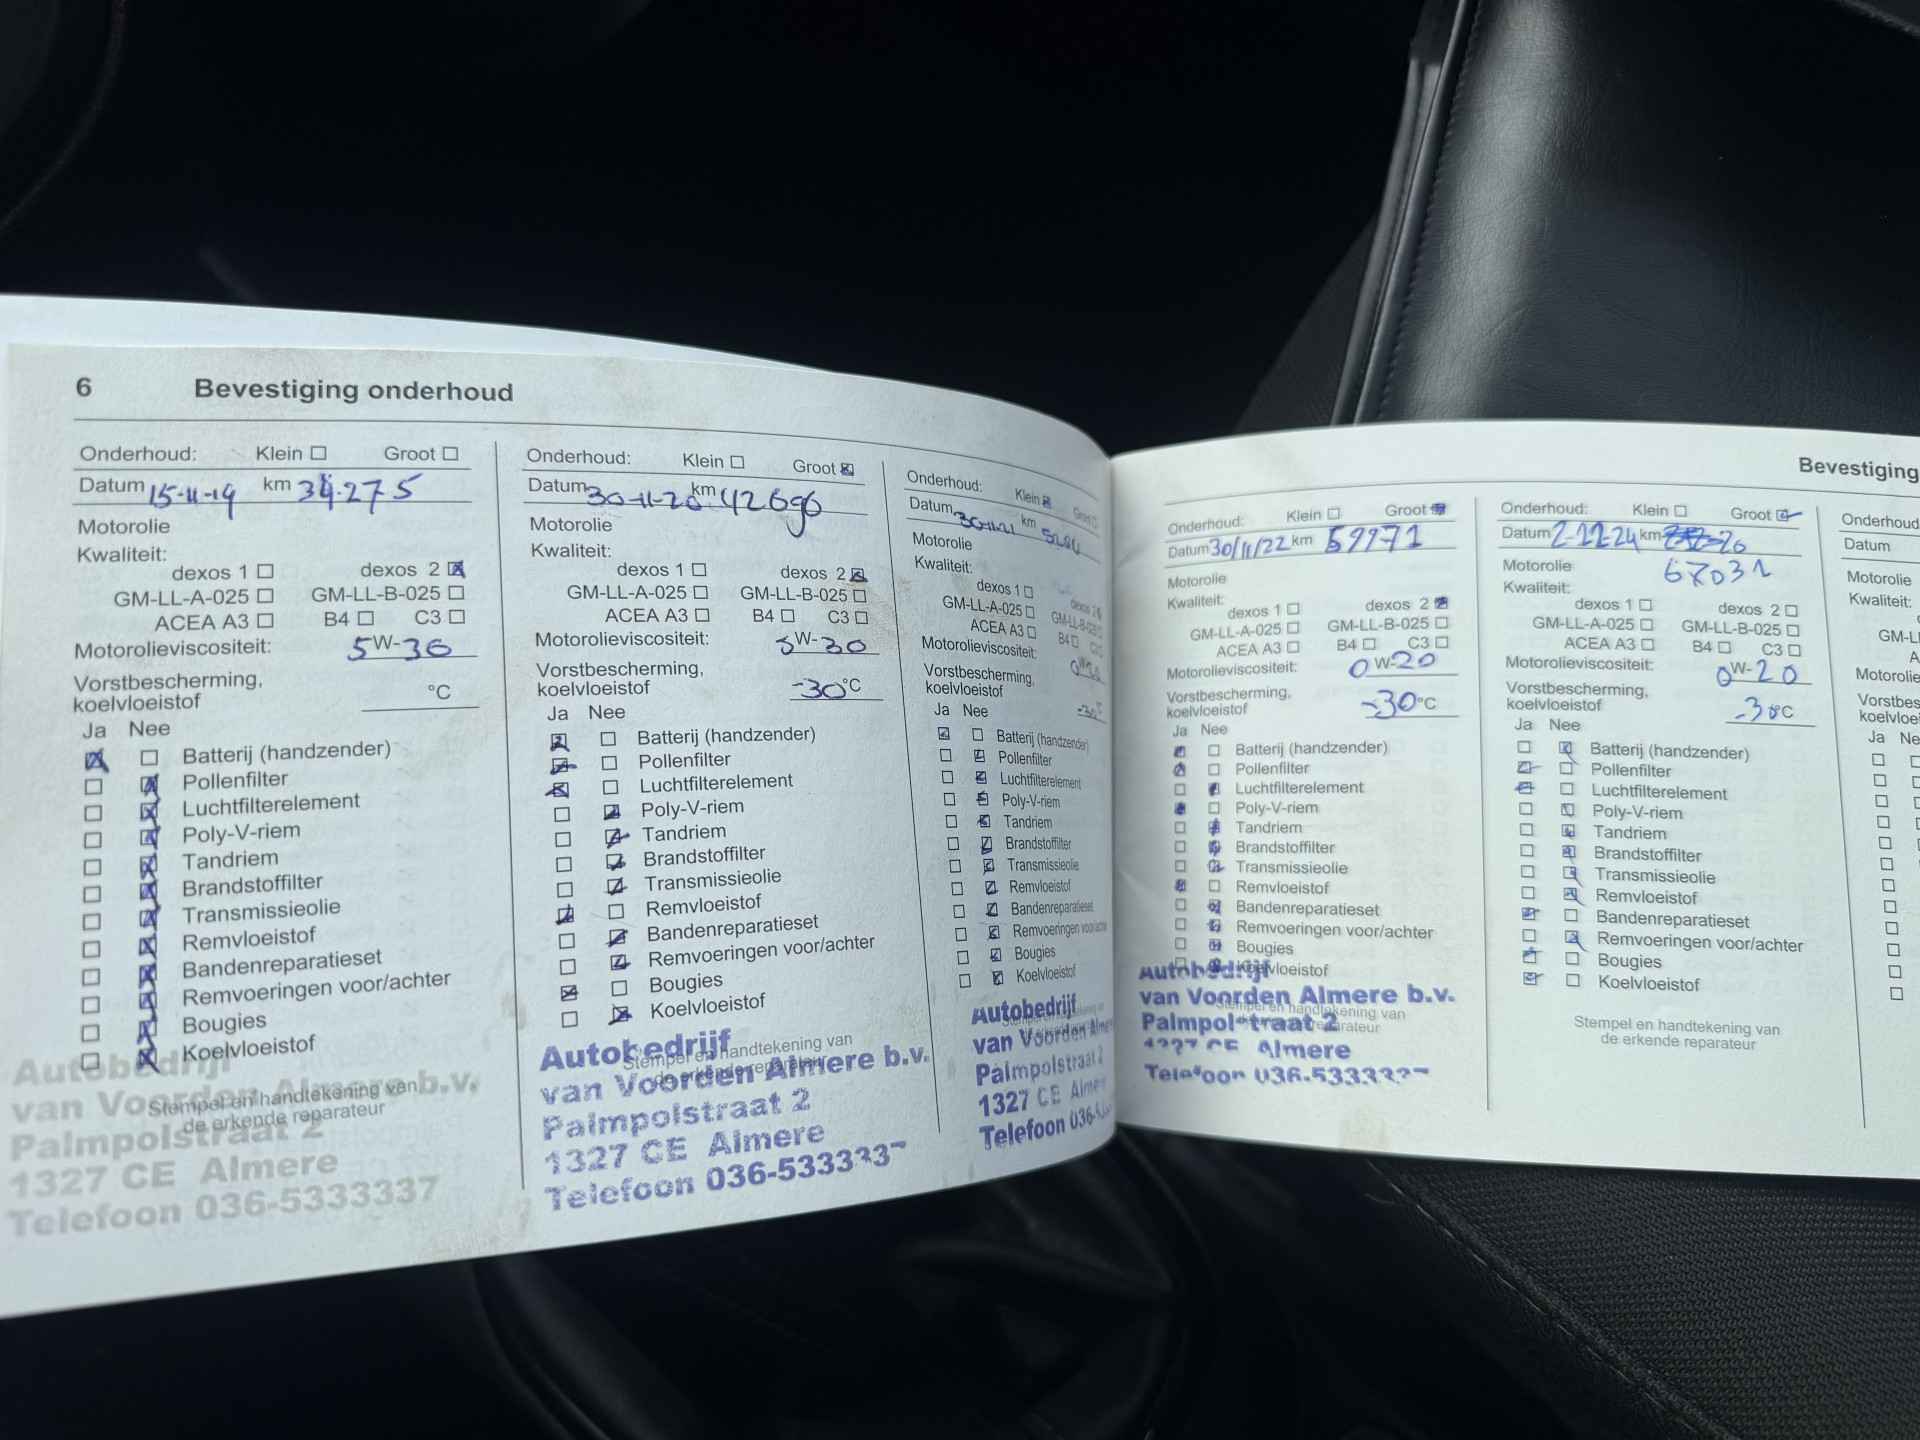 6 Bevestiging onderhoud
Onderhoud: Klein Groot
Datum 15-11-19 km 34.275
Motorolie
Kwaliteit:
dexos 1 dexos 2
GM-LL-A-025 GM-LL-B-025
ACEA A3 B4 C3
Motorolieviscositeit: 5W-30
Vorstbescherming,
koelvloeistof °C
Ja Nee
Batterij (handzender)
Pollenfilter
Luchtfilterelement
Poly-V-riem
Tandriem
Brandstoffilter
Transmissieolie
Remvloeistof
Bandenreparatieset
Remvoeringen voor/achter
Bougies
Koelvloeistof
Stempel en handtekening van
de erkende reparateur
Autobedrijf
van Voorden Almere b.v.
Palmpolstraat 2
1327 CE Almere
Telefoon 036-5333337
Onderhoud: Klein Groot
Datum 30-11-20 km 42696
Motorolie
Kwaliteit:
dexos 1 dexos 2
GM-LL-A-025 GM-LL-B-025
ACEA A3 B4 C3
Motorolieviscositeit: 5W-30
Vorstbescherming,
koelvloeistof -30°C
Ja Nee
Batterij (handzender)
Pollenfilter
Luchtfilterelement
Poly-V-riem
Tandriem
Brandstoffilter
Transmissieolie
Remvloeistof
Bandenreparatieset
Remvoeringen voor/achter
Bougies
Koelvloeistof
Stempel en handtekening van
de erkende reparateur
Autobedrijf
van Voorden Almere b.v.
Palmpolstraat 2
1327 CE Almere
Telefoon 036-5333337
Onderhoud: Klein Groot
Datum 30-11-21 km
Motorolie
Kwaliteit:
dexos 1 dexos 2
GM-LL-A-025 GM-LL-B-025
ACEA A3 B4 C3
Motorolieviscositeit:
Vorstbescherming,
koelvloeistof -30°C
Ja Nee
Batterij (handzender)
Pollenfilter
Luchtfilterelement
Poly-V-riem
Tandriem
Brandstoffilter
Transmissieolie
Remvloeistof
Bandenreparatieset
Remvoeringen voor/achter
Bougies
Koelvloeistof
Autobedrijf
van Voorden Almere
Palmpolstraat 2
1327 CE Almere
Telefoon 036-
Bevestiging
Onderhoud: Klein Groot
Datum 30/11/22 km 59971
Motorolie
Kwaliteit:
dexos 1 dexos 2
GM-LL-A-025 GM-LL-B-025
ACEA A3 B4 C3
Motorolieviscositeit: 0W-20
Vorstbescherming,
koelvloeistof -30°C
Ja Nee
Batterij (handzender)
Pollenfilter
Luchtfilterelement
Poly-V-riem
Tandriem
Brandstoffilter
Transmissieolie
Remvloeistof
Bandenreparatieset
Remvoeringen voor/achter
Bougies
Koelvloeistof
Stempel en handtekening van
de erkende reparateur
Autobedrijf
van Voorden Almere b.v.
Palmpolstraat 2
1327 CE Almere
Telefoon 036-5333337
Onderhoud: Klein Groot
Datum 2-12-24 km
67031
Motorolie
Kwaliteit:
dexos 1 dexos 2
GM-LL-A-025 GM-LL-B-025
ACEA A3 B4 C3
Motorolieviscositeit: 0W-20
Vorstbescherming,
koelvloeistof -30°C
Ja Nee
Batterij (handzender)
Pollenfilter
Luchtfilterelement
Poly-V-riem
Tandriem
Brandstoffilter
Transmissieolie
Remvloeistof
Bandenreparatieset
Remvoeringen voor/achter
Bougies
Koelvloeistof
Stempel en handtekening van
de erkende reparateur
Onderhoud
Datum
Motorolie
Kwaliteit:
GM-L
A
Motorolie
Vorstbes
koelvloei
Ja Ne